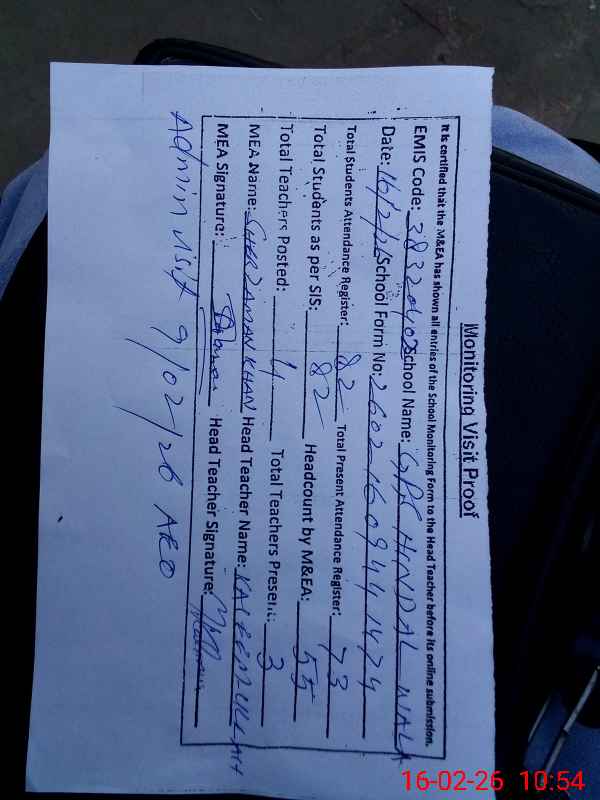 Monitoring Visit Proof
It is certified that the M&EA has shown all entries of the School Monitoring Form to the Head Teacher before its online submission.
EMIS Code: School Name: GPS HINDAL WALA
Date: 16/2/26 School Form No: 2602-1609441474
Total Students Attendance Register: 82 Total Present Attendance Register: 73
Total Students as per SIS: 82 Headcount by M&EA: 55
Total Teachers Posted: 4 Total Teachers Present: 3
MEA Name: SHERZAMAN KHAN Head Teacher Name: KALEEMULLAH
MEA Signature: Head Teacher Signature:
Admin visit 9/02/26 AEO
16-02-26 10:54